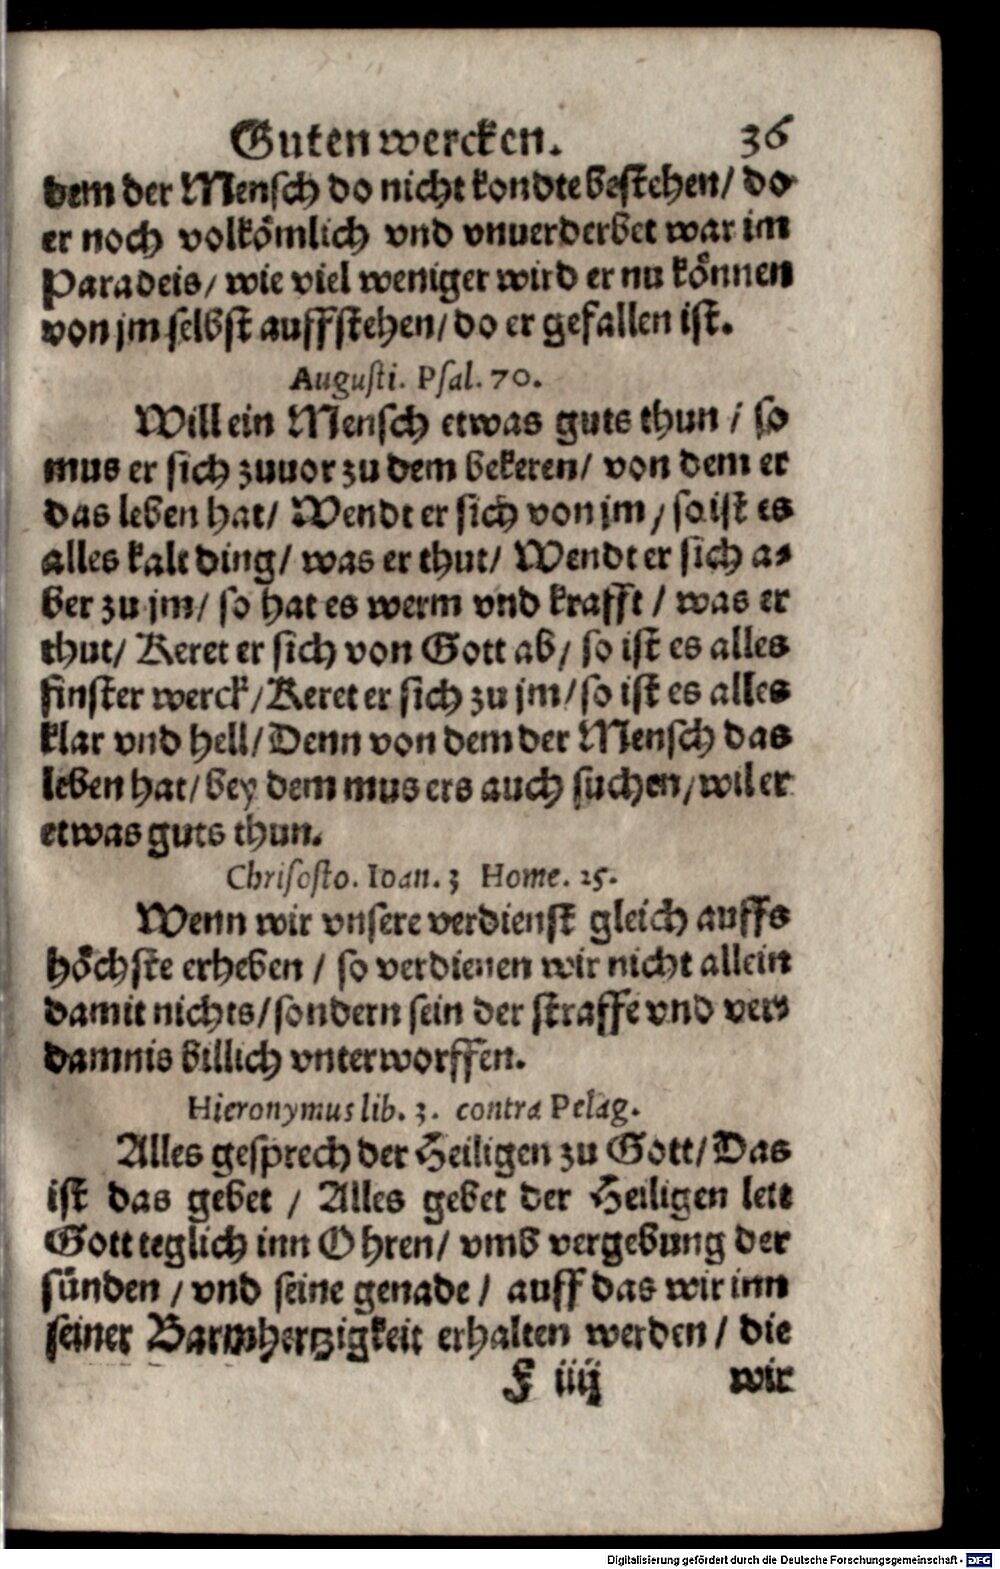 Guten wercken. 36
dem der Mensch do nicht kondte bestehen/ do
er noch volkömlich vnd vnuerderbet war im
Paradeis/ wie viel weniger wird er nu können
von jm selbst auffstehen/ do er gefallen ist.
Augusti. Psal. 70.
Will ein Mensch etwas guts thun / so
mus er sich zuuor zu dem bekeren/ von dem er
das leben hat/ Wendt er sich von jm / so ist es
alles kalt ding/ was er thut/ Wendt er sich a-
ber zu jm/ so hat es werm vnd krafft / was er
thut/ Keret er sich von Gott ab/ so ist es alles
finster werck/ Keret er sich zu jm/ so ist es alles
klar vnd hell/ Denn von dem der Mensch das
leben hat/ bey dem mus ers auch suchen/ wil er
etwas guts thun.
Chrisosto. Ioan. 3 Home. 25.
Wenn wir vnsere verdienst gleich auffs
höchste erheben / so verdienen wir nicht allein
damit nichts/ sondern sein der straffe vnd ver-
damnis billich vnterworffen.
Hieronymus lib. 3. contra Pelag.
Alles gesprech der Heiligen zu Gott/ Das
ist das gebet / Alles gebet der Heiligen leit
Gott teglich inn Ohren/ vmb vergebung der
sünden / vnd seine genade / auff das wir inn
seiner Barmhertzigkeit erhalten werden / die
F iiij wir
Digitalisierung gefördert durch die Deutsche Forschungsgemeinschaft - DFG